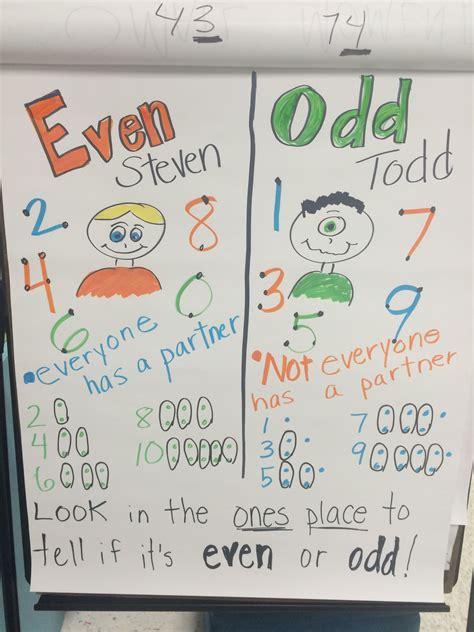 43 74
Even
Steven
2 8
4
6 0
•everyone
has a partner
2 8
4 10
6
Odd
Todd
1 7
3
5 9
•Not everyone
has a partner
1 7
3 9
5
Look in the ones place to
tell if it's even or odd!